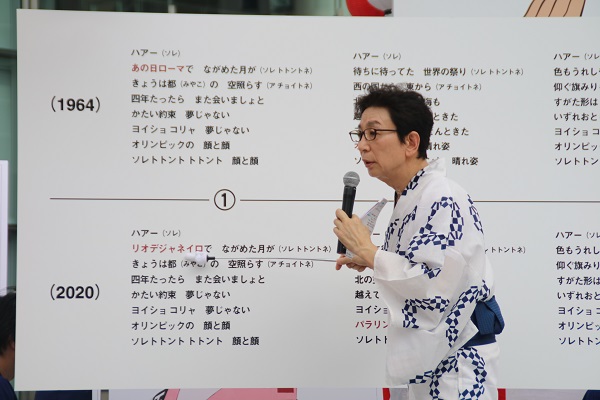 (1964)
ハアー(ソレ)
あの日ローマで ながめた月が(ソレトトントネ)
きょうは都(みやこ)の 空照らす(アチョイトネ)
四年たったら また会いましょと
かたい約束 夢じゃない
ヨイショコリャ 夢じゃない
オリンピックの 顔と顔
ソレトントトトント 顔と顔
ハアー(ソレ)
待ちに待ってた 世界の祭り(ソレトトントネ)
西の国から 東から(アチョイトネ)
晴れ姿
晴れ姿
ハアー(
色もうれし
仰ぐ旗みり
すがた形は
いずれおと
ヨイショコ
オリンピッ
ソレトント
①
(2020)
ハアー(ソレ)
リオデジャネイロで ながめた月が(ソレトトントネ)
きょうは都(みやこ)の 空照らす(アチョイトネ)
四年たったら また会いましょと
かたい約束 夢じゃない
ヨイショコリャ 夢じゃない
オリンピックの 顔と顔
ソレトントトトント 顔と顔
ハアー
北の
越えて
ヨイショ
パラリン
ソレトン
ハアー(
色もうれし
仰ぐ旗みり
すがた形は
いずれおと
ヨイショコ
オリンピッ
ソレトント